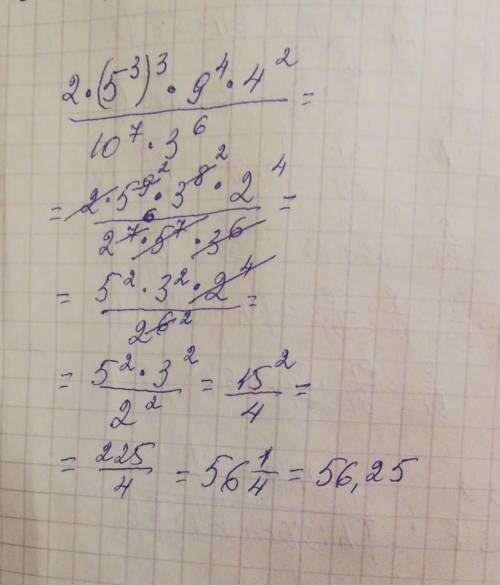 2·(5³)³·9⁴·4²
/ 10⁷·3⁶ =
= 2·5⁹ ²·3⁸ ²·2⁴
/ 2⁷ ⁶·5⁷·3⁶ =
= 5²·3²·2⁴
/ 2⁶ ² =
= 5²·3² / 2² = 15² / 4 =
= 225/4 = 56 1/4 = 56,25